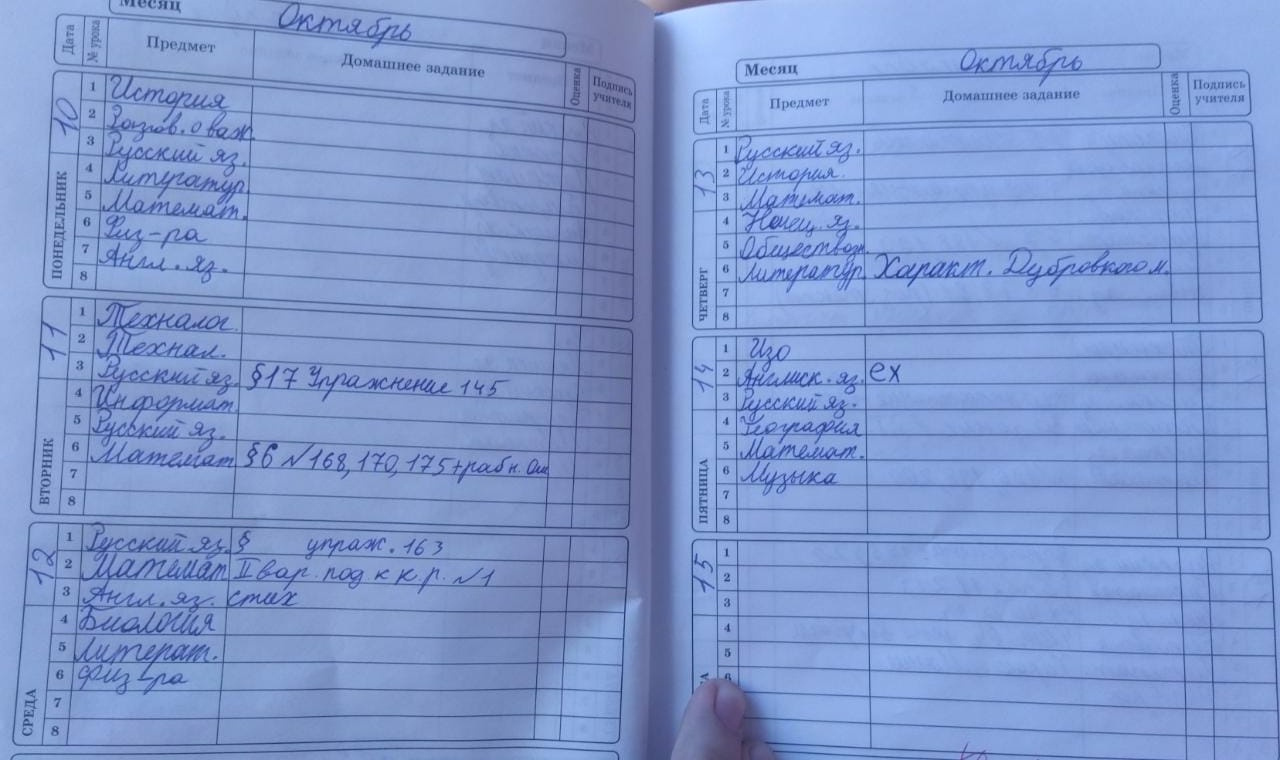 Месяц Октябрь
Дата № урока Предмет Домашнее задание Оценка Подпись учителя
10 ПОНЕДЕЛЬНИК
1 История
2 Разгов. о важ.
3 Русский яз.
4 Литератур.
5 Математ.
6 Физ-ра
7 Англ. яз.
8
11 ВТОРНИК
1 Техналог.
2 Технал.
3 Русский яз. §17 Упражнение 145
4 Информат.
5 Русский яз.
6 Математ §6 №168, 170, 175+раб н.
7
8
12 СРЕДА
1 Русский яз. § упраж. 163
2 Математ II вар. под к к.р. №1
3 Англ. яз. стих
4 Биология
5 Литерат.
6 Физ-ра
7
8
Месяц Октябрь
Дата № урока Предмет Домашнее задание Оценка Подпись учителя
13 ЧЕТВЕРГ
1 Русский яз.
2 История.
3 Математ.
4 Немец. яз.
5 Обществозн.
6 Литератур. Характ. Дубровкого м.
7
8
14 ПЯТНИЦА
1 Изо
2 Англиск. яз. ex
3 Русский яз.
4 География
5 Математ.
6 Музыка
7
8
15
1
2
3
4
5
6